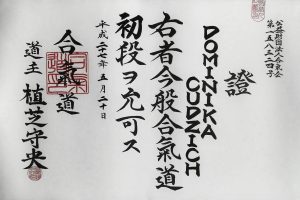 公益財団法人合氣会
證
DOMINIKA
CUDZICH
右者今般合氣道
初段ヲ允可ス
平成二十七年五月二十日
合氣道
道主 植芝守央